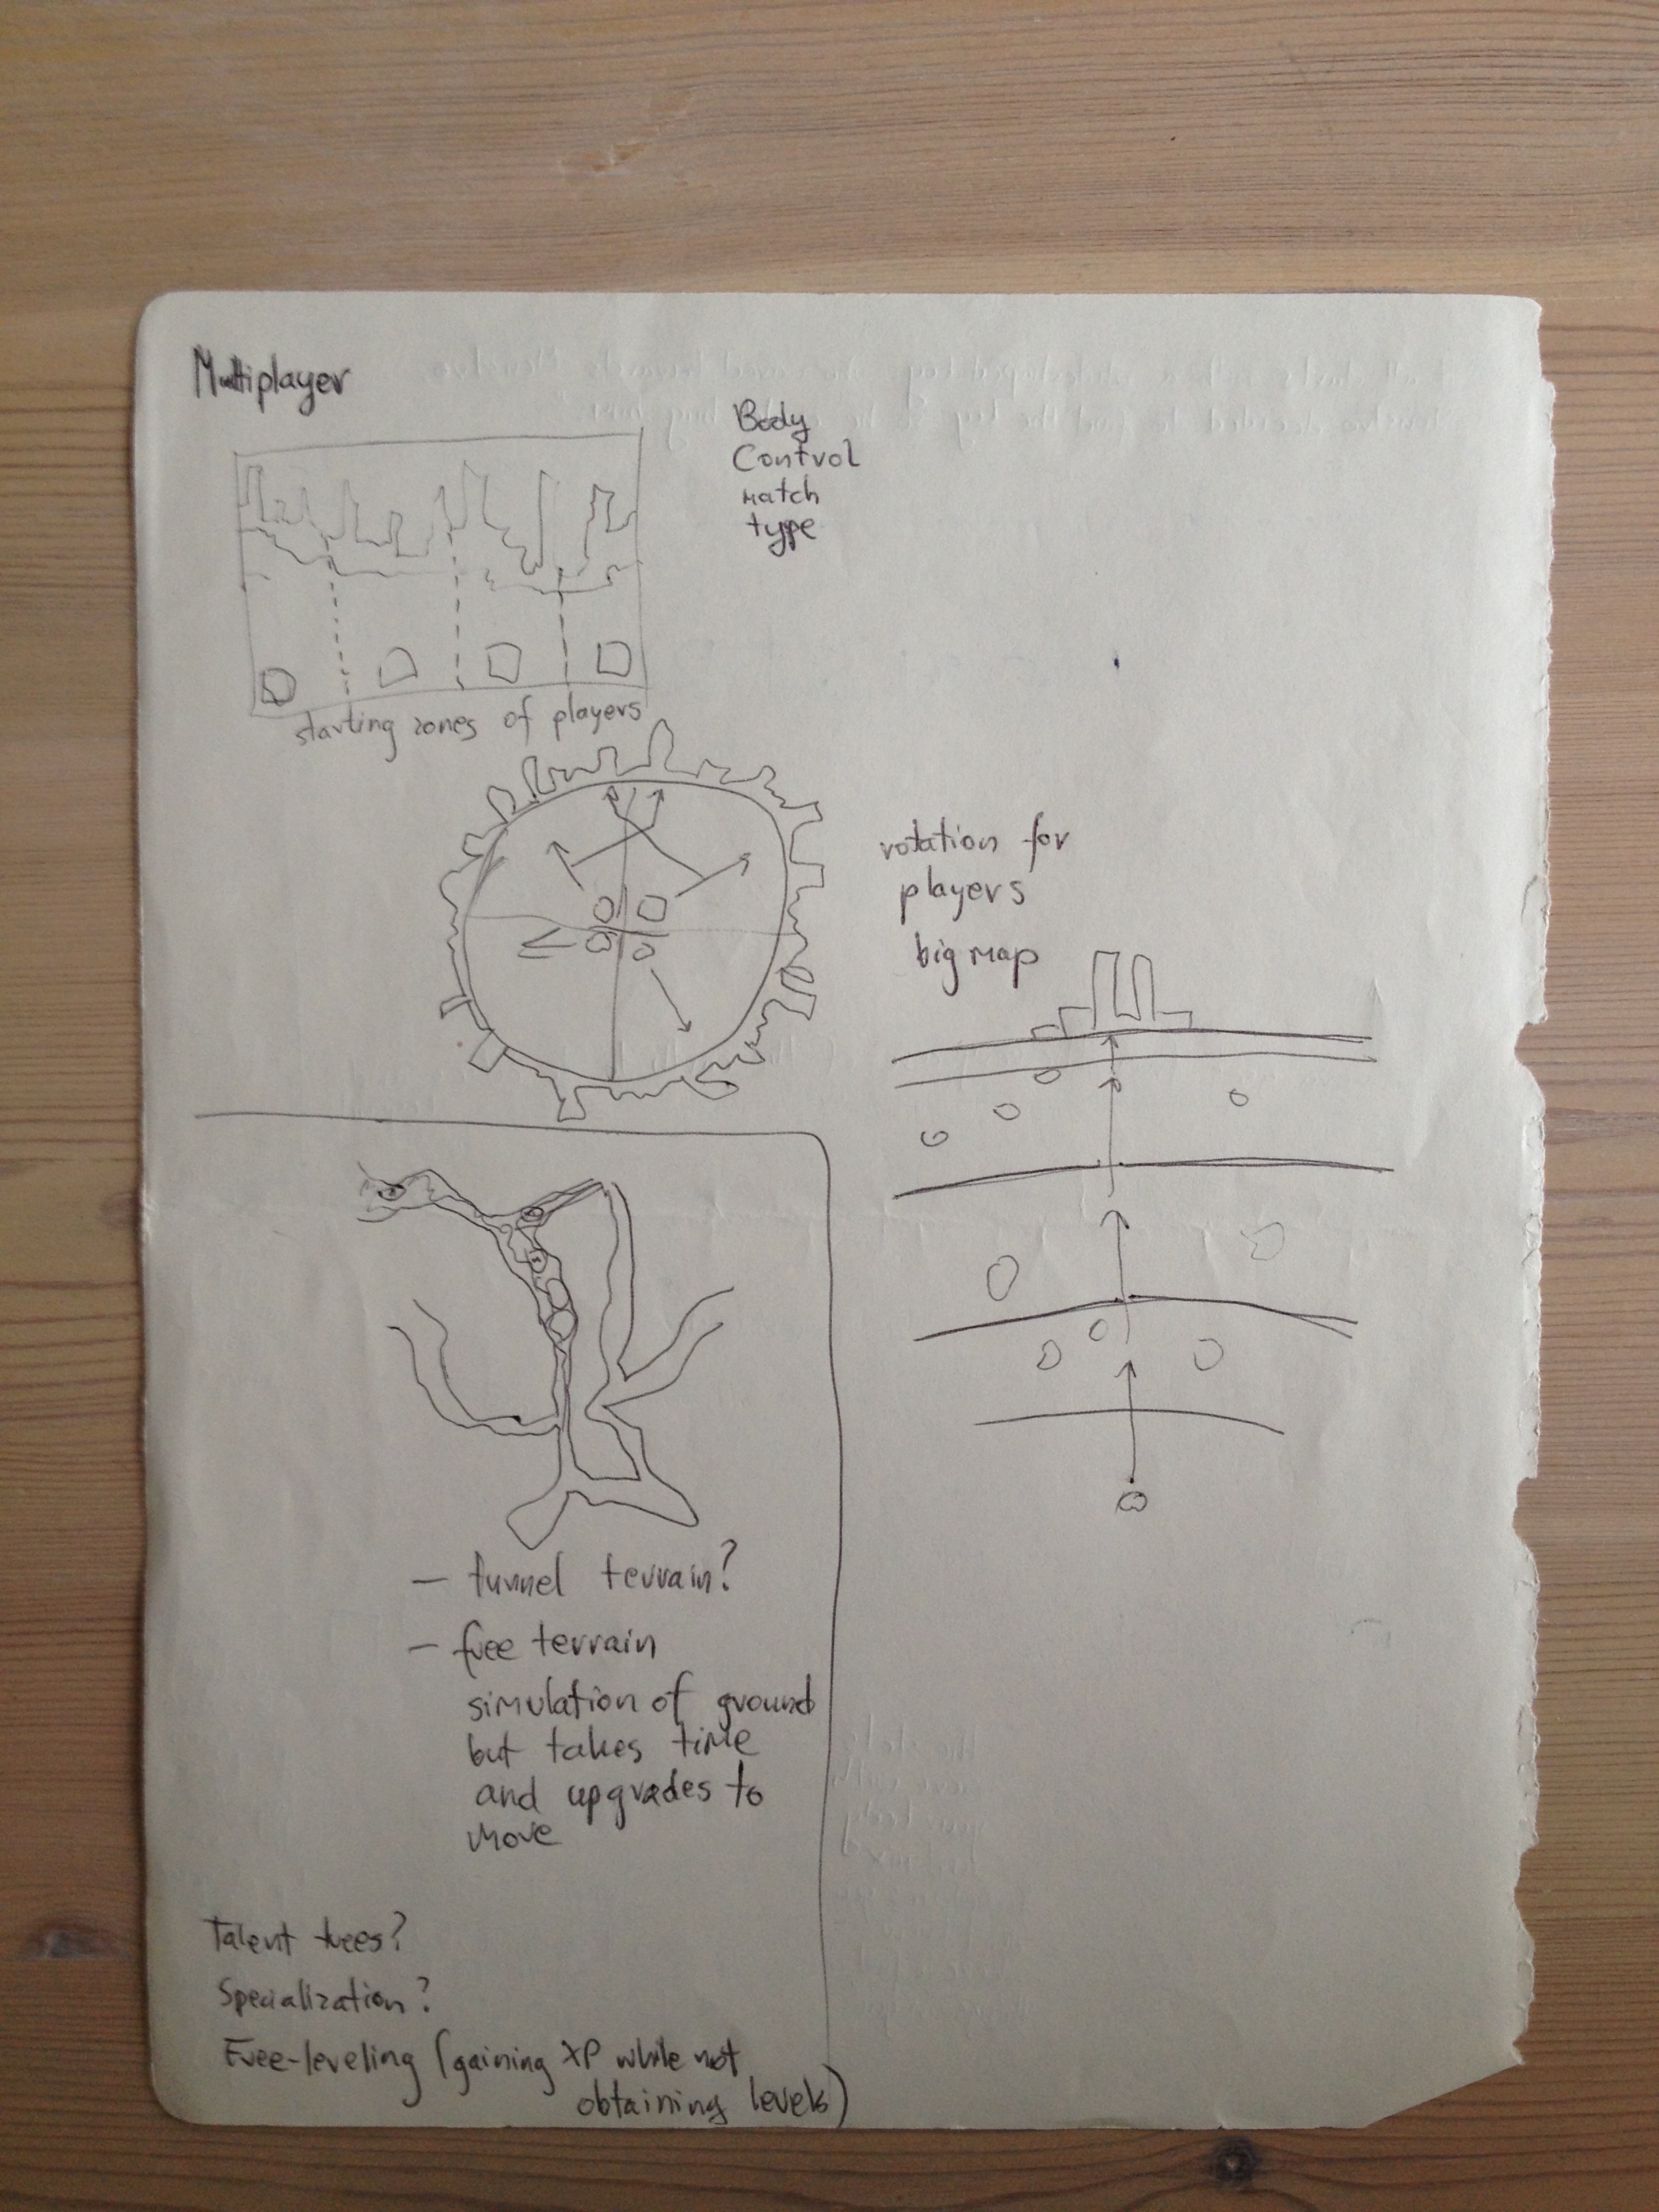 Multiplayer
Body
Control
match
type
starting zones of players
rotation for
players
big map
– tunnel terrain?
– free terrain
simulation of ground
but takes time
and upgrades to
move
Talent trees?
Specialization?
Free-leveling (gaining XP while not
obtaining levels)